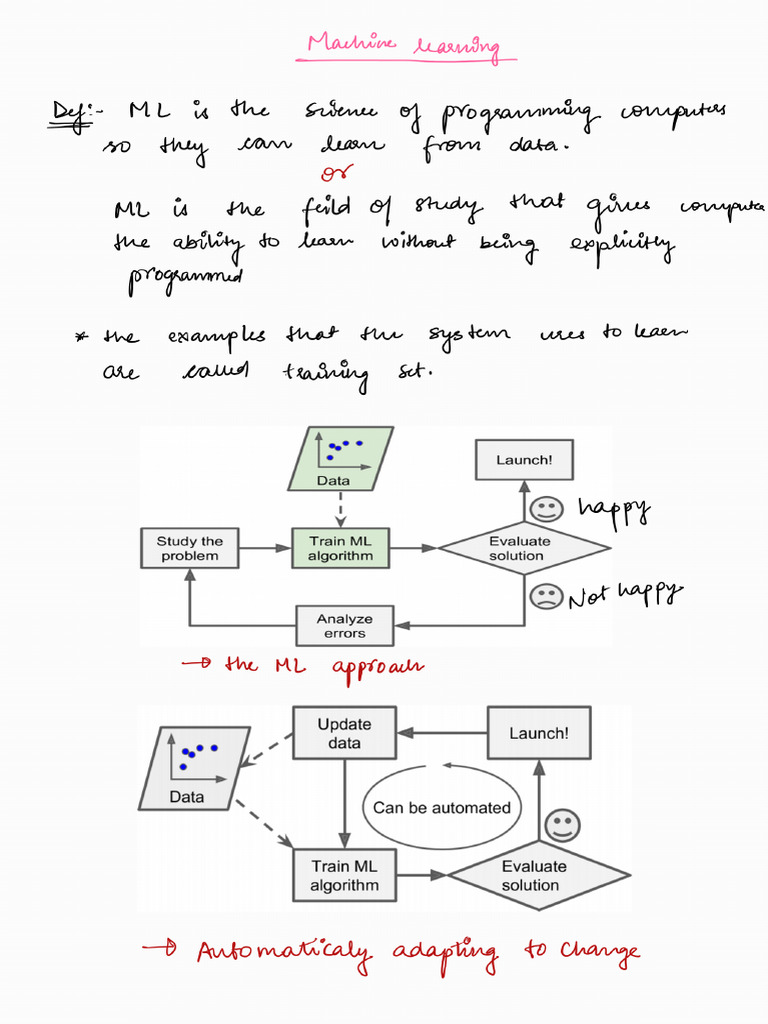 Machine learning
Def:- ML is the science of programming computers
so they can learn from data.
or
ML is the feild of study that gives compute
the ability to learn without being explicitly
programmed
* the examples that the system uses to learn
are called training set.
Data
Launch!
happy
Study the
problem
Train ML
algorithm
Evaluate
solution
Not happy.
Analyze
errors
→ the ML approach
Update
data
Launch!
Data
Can be automated
Train ML
algorithm
Evaluate
solution
→ Automaticaly adapting to change